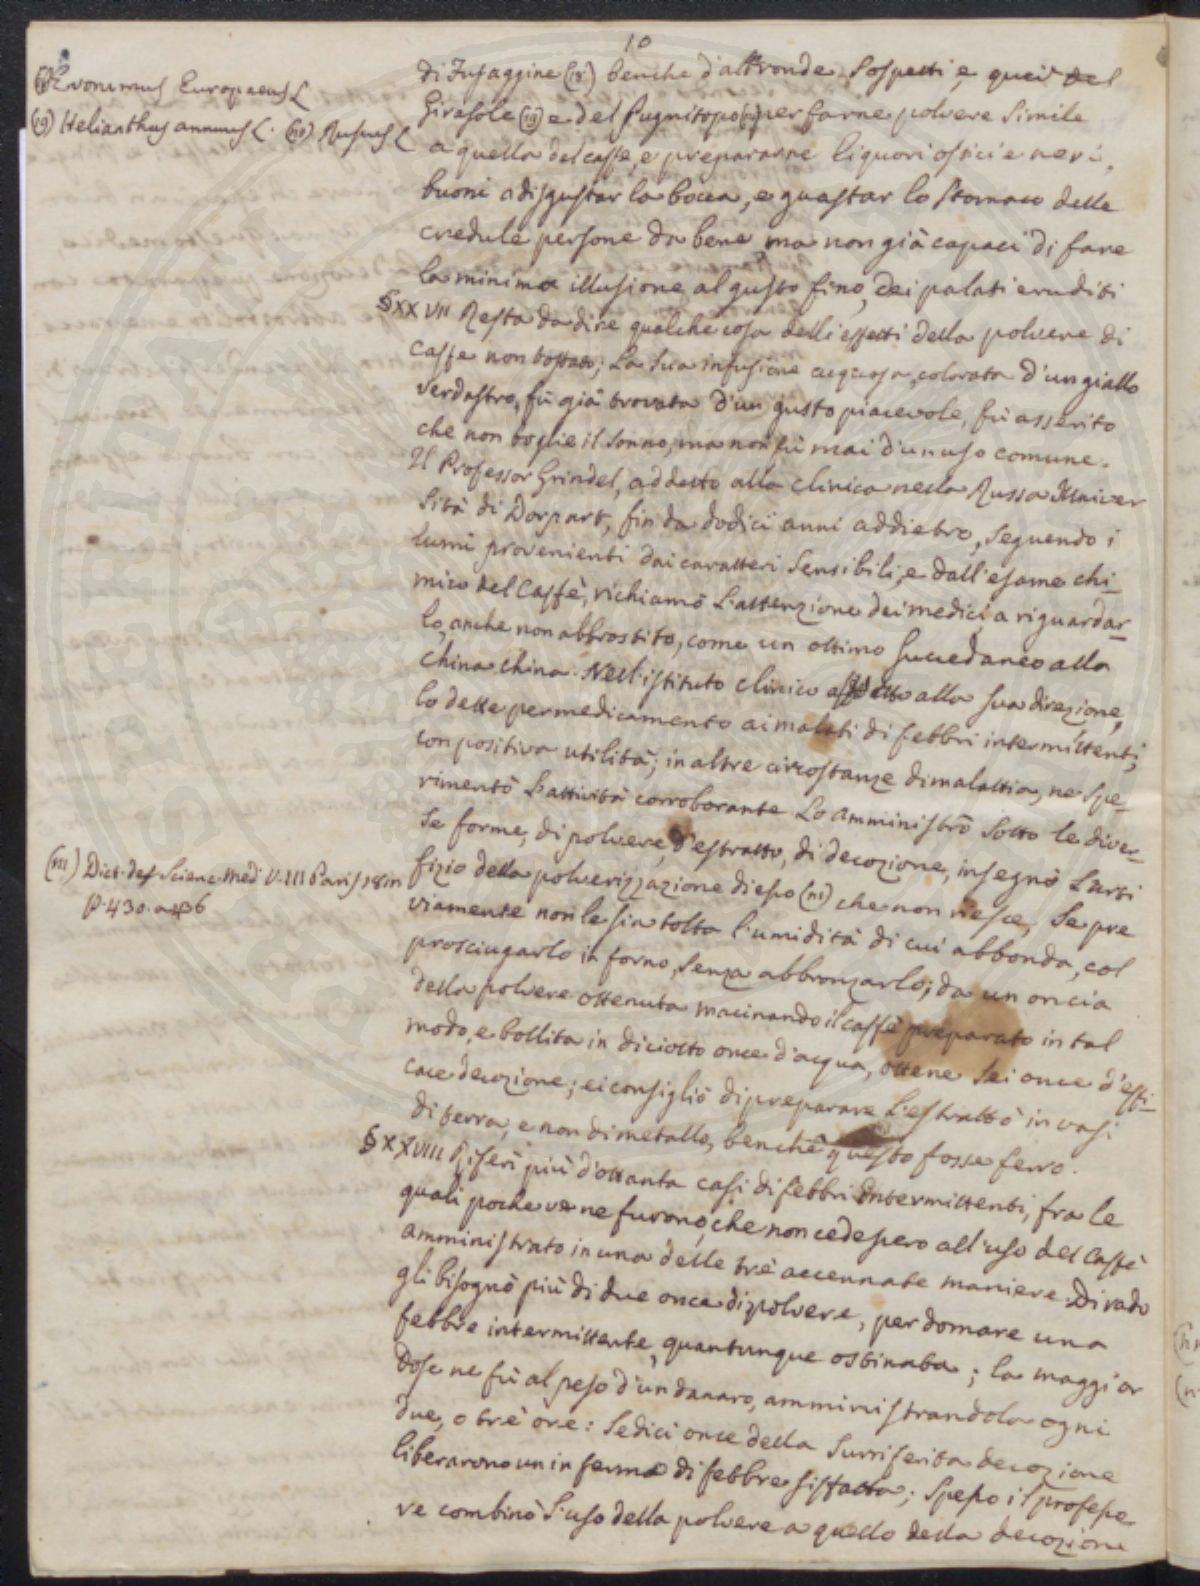 10
(18) Evonimus Europaeus L
(19) Helianthus annuus L. (110) Ruscus L
di Fusaggine (18) benche d'altronde sospetti, e quei del
Girasole (19) e del Pugnitopo (110) per farne polvere simile
a quella del caffe, e prepararne liquori ostici e neri,
buoni a disgustar la bocca, e guastar lo stomaco delle
credule persone da bene, ma non già capaci di fare
la minima illusione al gusto fino, dei palati eruditi
§XXVII Resta da dire qualche cosa delli effetti della polvere di
caffe non tostato; La sua infusione acquosa, colorata d'un giallo
verdastro, fù già trovata d'un gusto piacevole, fù asserito
che non toglie il sonno, ma non fù mai d'un uso comune.
Il Professor Grindel, addetto alla clinica nella Russa Univer
sità di Dorpart, fin da dodici anni addietro, seguendo i
lumi provenienti dai caratteri sensibili, e dall'esame chi-
mico del Caffè, richiamò l'attenzione dei medici, a riguardar-
lo, anche non abbrostito, come un ottimo succedaneo alla
china china. Nell'istituto clinico alla sua direzione,
lo dette per medicamento ai malati di febbri intermittenti,
con positiva utilità; in altre circostanze di malattia, ne spe-
rimentò l'attività corroborante Lo amministrò sotto le diver-
se forme, di polvere, d'estratto, di decozione, insegnò l'arti
fizio della polverizzazione di esso (111) che non riesce, se pre
viamente non le sia tolta l'umidità di cui abbonda, col
prosciugarlo in forno, senza abbronzarlo; da un oncia
della polvere ottenuta macinando il caffè preparato in tal
modo, e bollita in diciotto once d'acqua, ottene sei once d'effi-
cace decozione; ei consigliò di preparare l'estratto in vasi
di terra, e non di metallo, benchè questo fosse ferro.
(111) Dict. des Scienc. Med. V. III Paris 18
p. 430. a 436
§XXVIII Riferì più d'ottanta casi di febbri intermittenti, fra le
quali poche ve ne furono, che non cedessero all'uso del Caffè
amministrato in una delle trè accennate maniere. Di rado
gli bisognò più di due once di polvere, per domare una
febbre intermittente, quantunque ostinata; la maggior
dose ne fù al peso d'un danaro, amministrandola ogni
due, o trè ore: sedici once della surriferita decozione
liberarono un infermo di febbre siffatta; spesso il professo
re combinò l'uso della polvere a quello della decozione